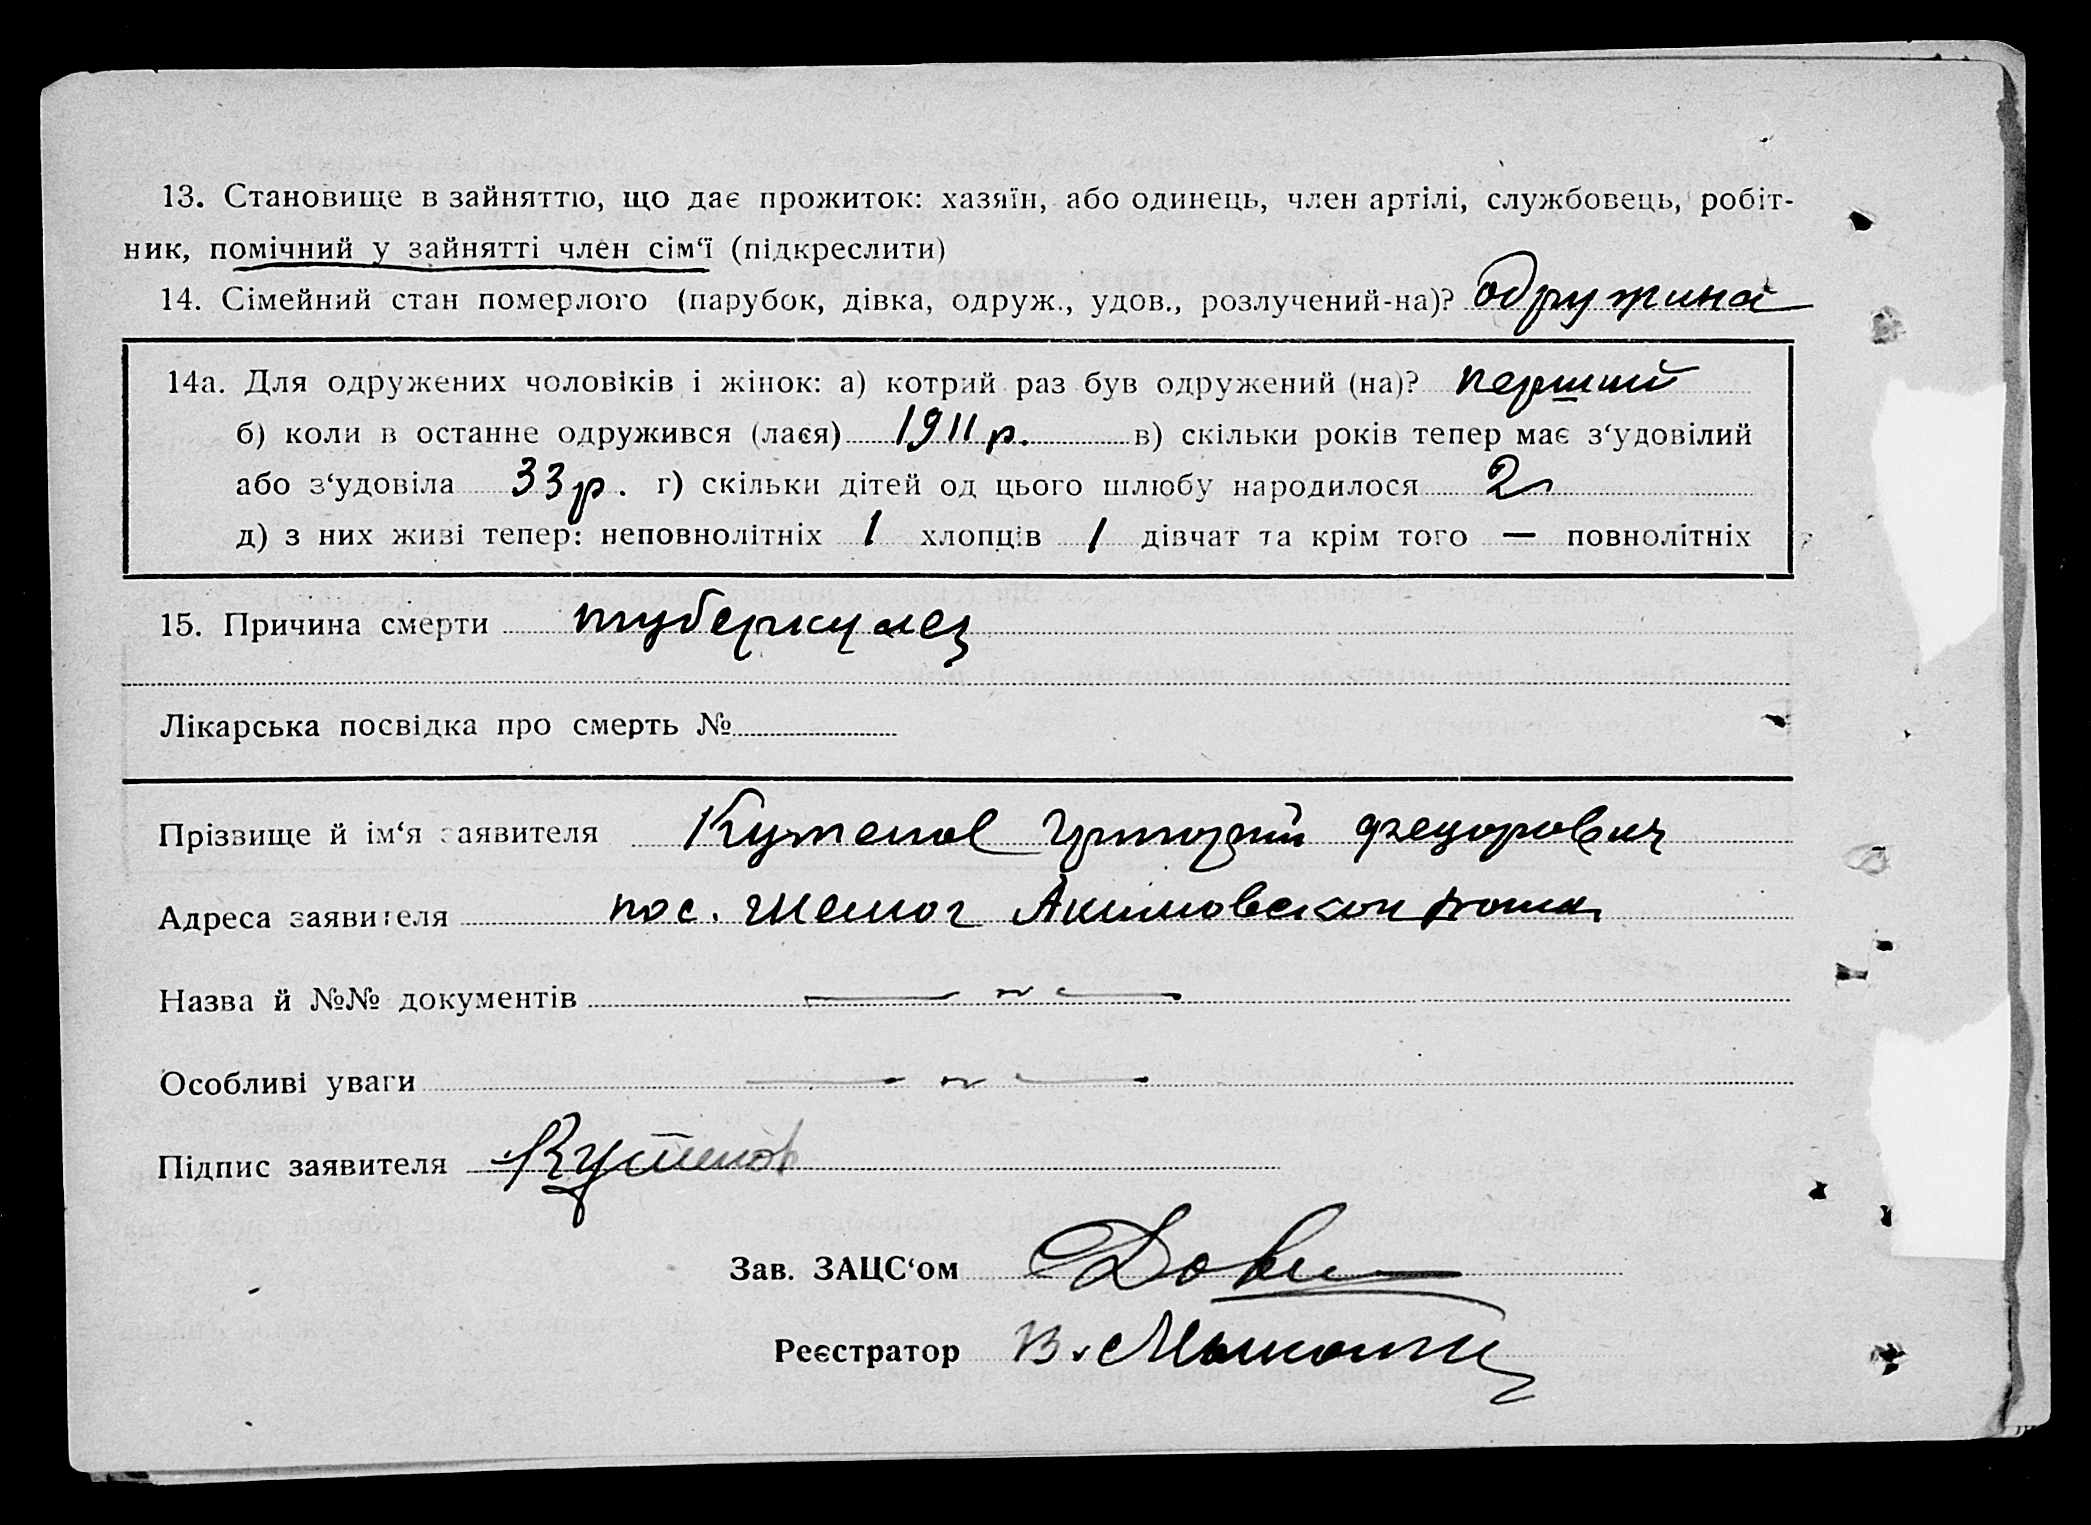 13. Становище в зайняттю, що дає прожиток: хазяїн, або одинець, член артілі, службовець, робіт-
ник, помічний у зайнятті член сім‘ї (підкреслити)
14. Сімейний стан померлого (парубок, дівка, одруж., удов., розлучений-на)? одружина
14а. Для одружених чоловіків і жінок: а) котрий раз був одружений (на)? перший
б) коли в останнє одружився (лася) 1911 р. в) скільки років тепер має з‘удовілий
або з‘удовіла 33 р. г) скільки дітей од цього шлюбу народилося 2
д) з них живі тепер: неповнолітніх 1 хлопців 1 дівчат та крім того — повнолітніх
15. Причина смерти туберкулез
Лікарська посвідка про смерть №
Прізвище й ім‘я заявителя Кутепов Григорий
Адреса заявителя пос. Акимовской
Назва й №№ документів
Особливі уваги
Підпис заявителя Кутепов
Зав. ЗАЦС‘ом
Реєстратор